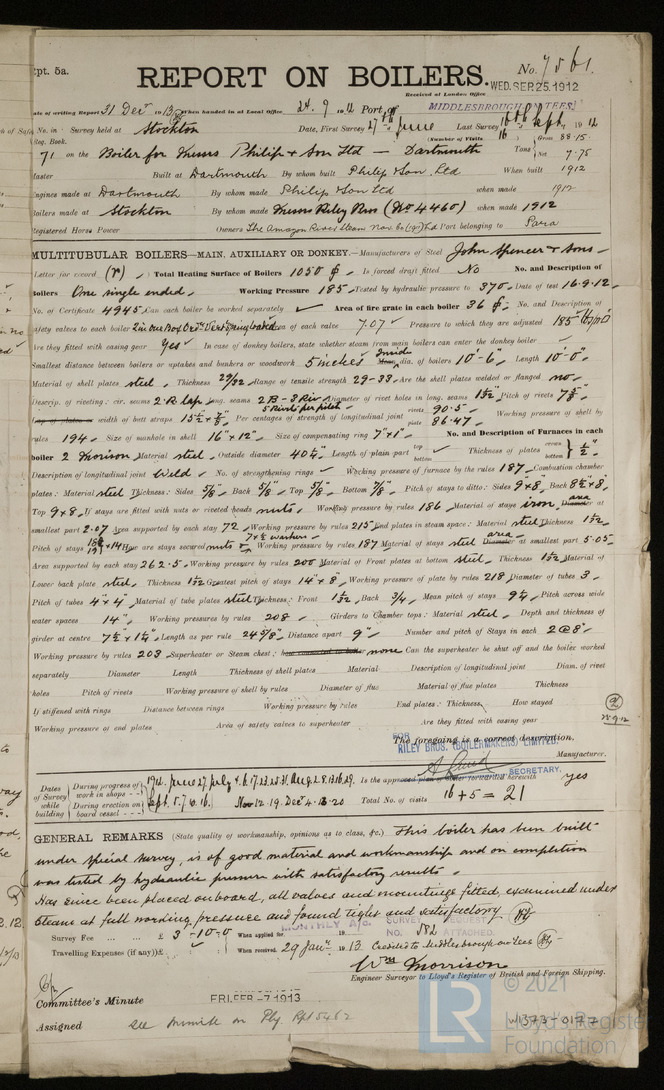 Rpt. 5a.
REPORT ON BOILERS.
No. 7561.
Received at London Office WED. SEP. 25 1912
Date of writing Report 31 Decr 1912 When handed in at Local Office 24. 9 1912 Port of MIDDLESBROUGH-ON-TEES
No. in Survey held at Stockton Date, First Survey 27th June Last Survey 16th Sept. 1912
Reg. Book. (Number of Visits 16
71 on the Boiler for Messrs Philip & Son Ltd — Dartmouth Tons { Gross 88.15 Net 7.75
Master Built at Dartmouth By whom built Philip & Son, Ltd When built 1912
Engines made at Dartmouth By whom made Philip & Son Ltd when made 1912
Boilers made at Stockton By whom made Messrs Riley Bros (No 4460) when made 1912
Registered Horse Power Owners The Amazon River Steam Nav. Co (1911) Ltd Port belonging to Para
MULTITUBULAR BOILERS—MAIN, AUXILIARY OR DONKEY.—Manufacturers of Steel John Spencer & Sons
(Letter for record (r) ) Total Heating Surface of Boilers 1050 Is forced draft fitted No No. and Description of
Boilers One single ended. Working Pressure 185 Tested by hydraulic pressure to 370 Date of test 16.9.12
No. of Certificate 4945 Can each boiler be worked separately ✓ Area of fire grate in each boiler 36 No. and Description of
safety valves to each boiler Area of each valve 7.07 Pressure to which they are adjusted 185
Are they fitted with easing gear Yes In case of donkey boilers, state whether steam from main boilers can enter the donkey boiler
Smallest distance between boilers or uptakes and bunkers or woodwork 5 inches Inside dia. of boilers 10'-6" Length 10'-0"
Material of shell plates steel Thickness 29/32 Range of tensile strength 29-33 Are the shell plates welded or flanged no
Descrip. of riveting: cir. seams 2 R lap long. seams 2 B-S Riv Diameter of rivet holes in long. seams 1 5/32 Pitch of rivets 7 5/8
width of butt straps 15 1/2 × 7/8 Per centages of strength of longitudinal joint rivets 90.5 plate 86.47 Working pressure of shell by
rules 194 Size of manhole in shell 16" × 12" Size of compensating ring 7" × 1" No. and Description of Furnaces in each
boiler 2 Morison Material steel Outside diameter 40 1/4 Length of plain part top bottom Thickness of plates crown bottom } 1/2"
Description of longitudinal joint Weld No. of strengthening rings Working pressure of furnace by the rules 187 Combustion chamber
plates: Material steel Thickness: Sides 5/8 Back 5/8 Top 5/8 Bottom 7/8 Pitch of stays to ditto: Sides 9 × 8 Back 8 3/4 × 8
Top 9 × 8 If stays are fitted with nuts or riveted heads nuts Working pressure by rules 186 Material of stays iron area at
smallest part 2.07 Area supported by each stay 72 Working pressure by rules 215 End plates in steam space: Material steel Thickness 1 1/32
Pitch of stays How are stays secured nuts Working pressure by rules 187 Material of stays steel area at smallest part 5.05
Area supported by each stay 262.5 Working pressure by rules 200 Material of Front plates at bottom steel Thickness 1 1/32 Material of
Lower back plate steel Thickness 1 1/32 Greatest pitch of stays 14" × 8" Working pressure of plate by rules 218 Diameter of tubes 3
Pitch of tubes 4" × 4" Material of tube plates steel Thickness: Front 1 1/32 Back 3/4 Mean pitch of stays 9 1/4 Pitch across wide
water spaces 14" Working pressures by rules 208 Girders to Chamber tops: Material steel Depth and thickness of
girder at centre 7 1/2 × 1 1/4 Length as per rule 24 5/8" Distance apart 9" Number and pitch of Stays in each 2 @ 8"
Working pressure by rules 203 Superheater or Steam chest; how connected to boiler none Can the superheater be shut off and the boiler worked
separately Diameter Length Thickness of shell plates Material Description of longitudinal joint Diam. of rivet
holes Pitch of rivets Working pressure of shell by rules Diameter of flue Material of flue plates Thickness
If stiffened with rings Distance between rings Working pressure by rules End plates: Thickness How stayed
Working pressure of end plates Area of safety valves to superheater Are they fitted with easing gear
The foregoing is a correct description,
FOR RILEY BROS. (BOILERMAKERS) LIMITED,
Manufacturer.
SECRETARY.
Dates of Survey while building { During progress of work in shops - - 1912. June 27, July 4. 6. 17. 23. 25. 31. Aug. 2. 8. 13. 16. 29. Is the approved plan of boiler forwarded herewith yes
During erection on board vessel - - - Sept. 5. 7. 6. 16. Nov 12. 19. Decr 4. 13. 20 Total No. of visits 16 + 5 = 21
GENERAL REMARKS (State quality of workmanship, opinions as to class, &c.) This boiler has been built
under special survey, is of good material and workmanship and on completion
was tested by hydraulic pressure with satisfactory results.
Has since been placed onboard, all valves and mountings fitted, examined under
steam at full working pressure and found tight and satisfactory
Survey Fee ... ... £ 3 - 10 - 0 When applied for, MONTHLY A/c. SURVEY REQUEST NO. 582 ATTACHED.
Travelling Expenses (if any) £ When received, 29 Jany 1913 Credited to Middlesbrough on Tees
Wm Morrison
Engineer Surveyor to Lloyd's Register of British and Foreign Shipping.
Committee's Minute FRI. FEB -7 1913
Assigned see minute on Ply. Rpt 5452
© 2021
Lloyd's Register
Foundation
W1373-0177